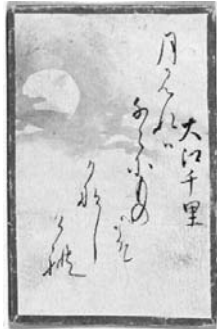 大江千里
月みれハ
千ゝにもの
こそ
かなし
けれ